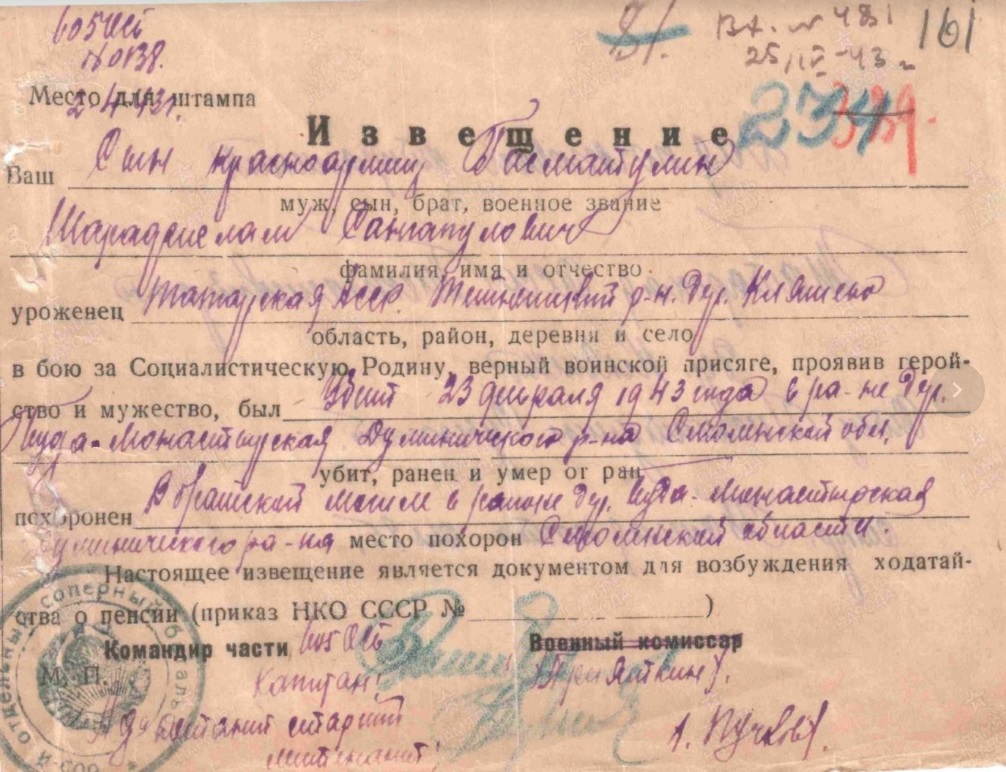 605 ОСБ
№ 0138.
2.4.43 г.
Вх. № 481
25/IV-43 г
161
234
Место для штампа
Извещение
Ваш Сын красноармеец
муж, сын, брат, военное звание
фамилия, имя и отчество
уроженец Татарская АССР. р-н. Дер. Кляшево
область, район, деревня и село
в бою за Социалистическую Родину, верный воинской присяге, проявив герой-
ство и мужество, был Убит 23 февраля 1943 года в ра-не дер.
Буда-Монастырская Думинического р-на Смоленской обл.
убит, ранен и умер от ран
похоронен В братской могиле в районе дер. Буда-Монастырская
Думинического ра-на место похорон Смоленской области.
Настоящее извещение является документом для возбуждения ходатай-
ства о пенсии (приказ НКО СССР № )
Командир части 605 ОСБ Военный комиссар
Капитан:
М. П.
Адъютант старший
лейтенант:
/Пучков/.
отдельный саперный батальон
605-й